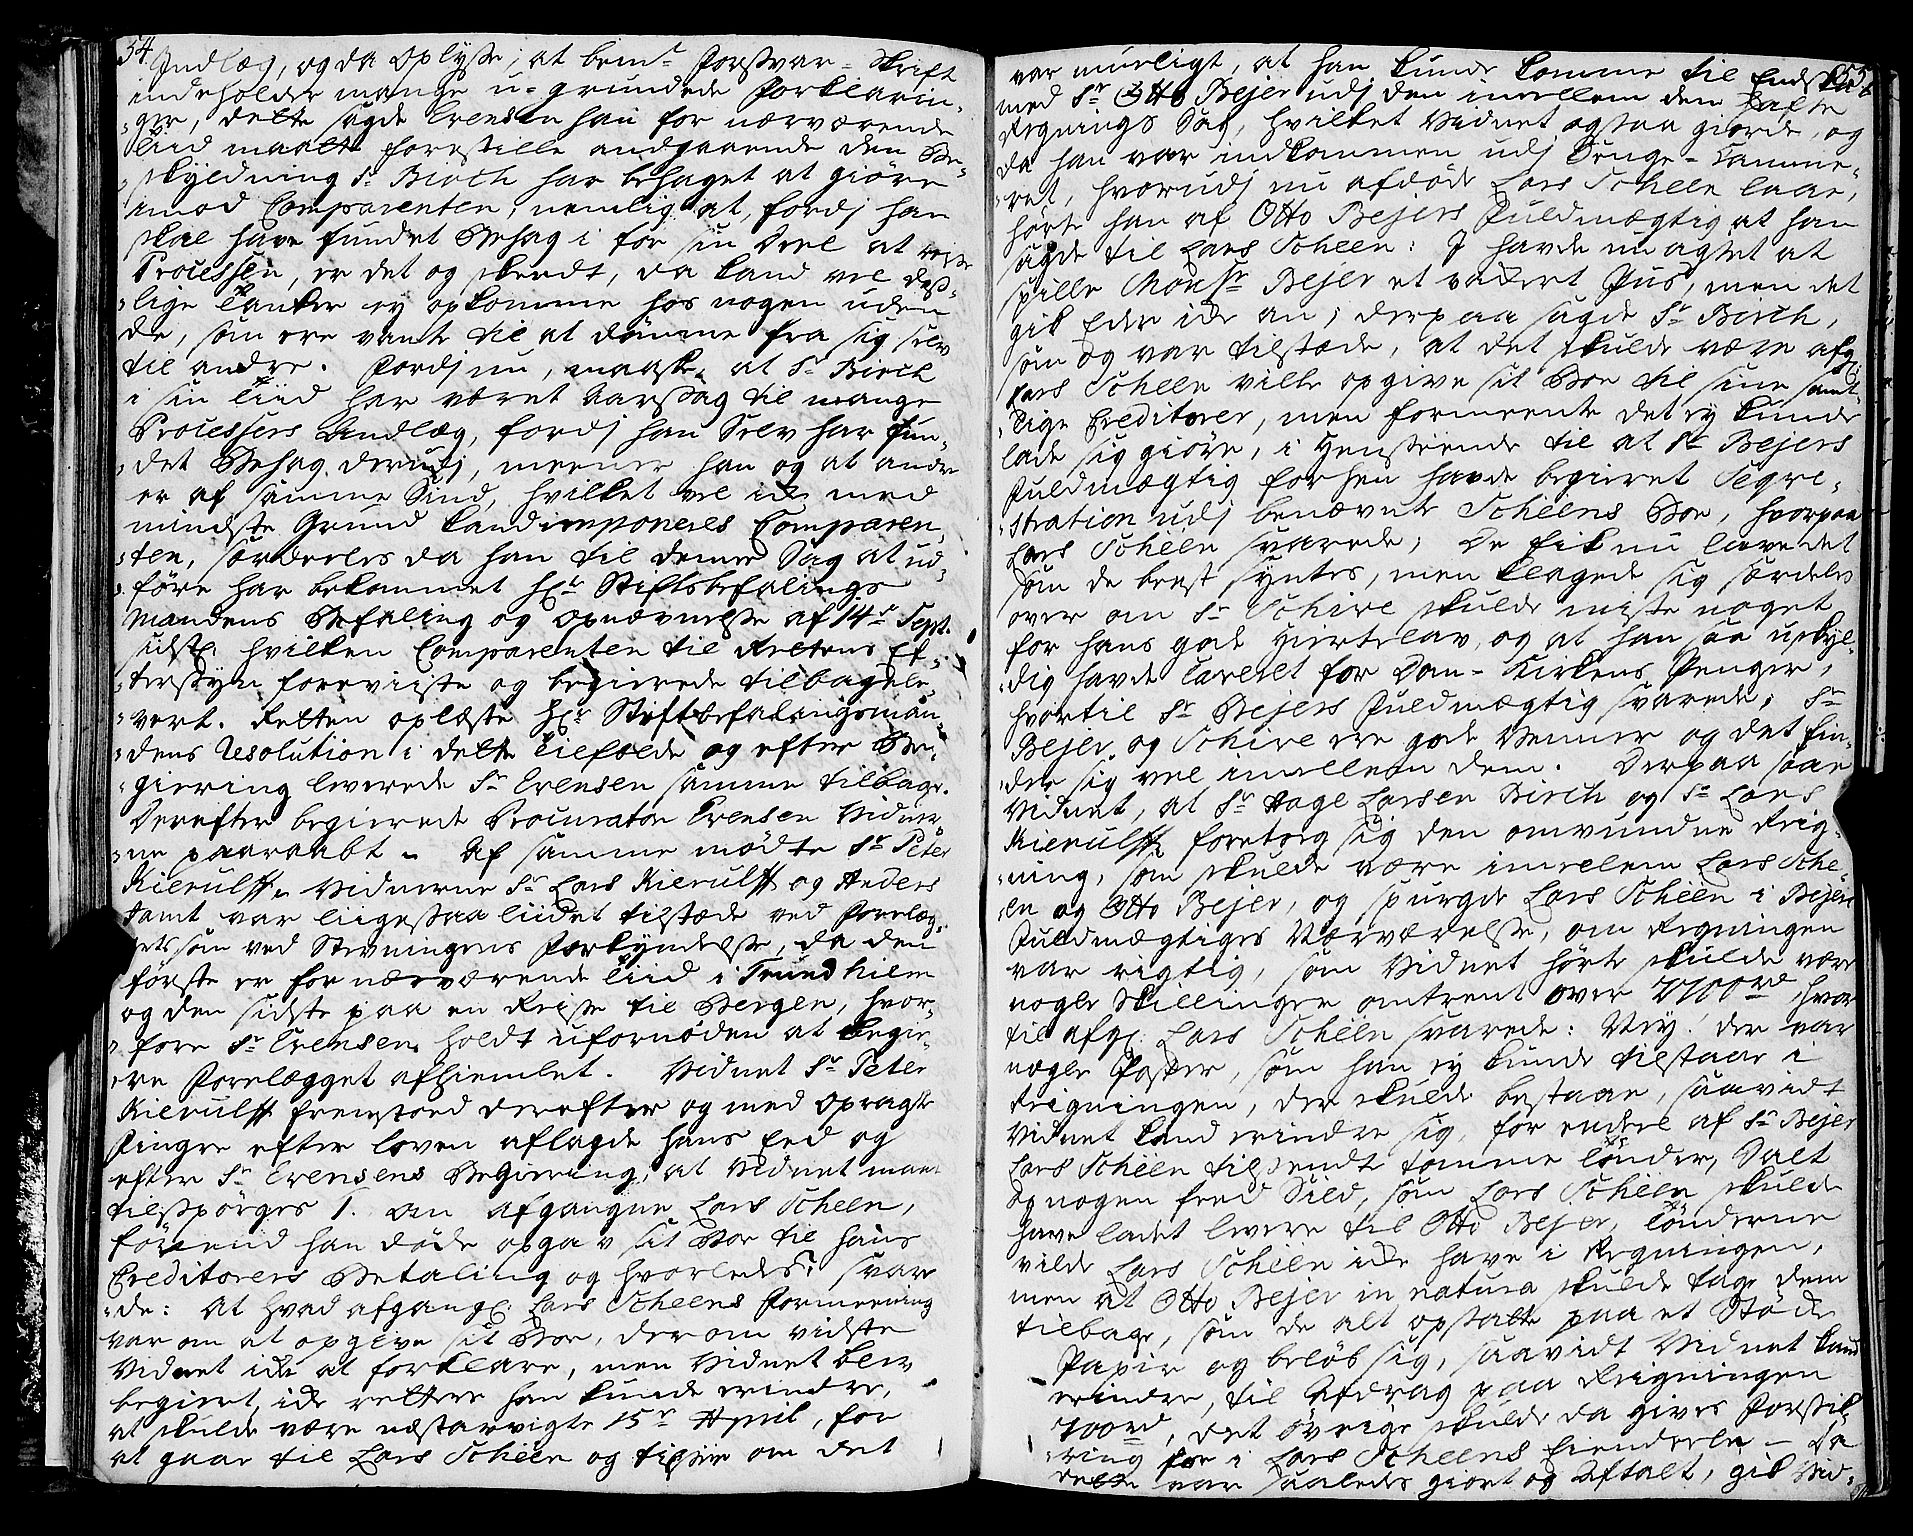 54.
Indlæg, og da oplyste, at bem.te Forsvar-Skrift
indeholder mange u-grundede Forklarin-
ger, dette sagde Erensen han for nærværende
Tiid maatte forestille andgaaende den Be-
skyldning Sr. Birch har behaget at giöre
imod Comparenten, nemlig at, fordj han
skal have fundet Behag i for sin Deel at reise
Processen, er det og skeedt, da kand vel des-
lige Tanker ej opkomme hos nogen uden
de, som ere vante til at dömme fra sig selv
til andre. Fordj nu, maaske, at Sr. Birch
i sin Tiid har været Aarsag til mange
Processers Anlæg, fordj han Selv har fun-
det Behag derudj, meener han og at andre
er af samme Sind, hvilket vel icke med
mindste Grund kand imponeres Comparen-
ten, særdeles da han til denne Sag at ud-
före har bekommet Hr. Stiftsbefalings
Mandens Befaling og Opnævnelse af 14de Sept.
sidstl. hvilken Comparenten til Rettens Ef-
tersyn foreviiste og begierede tilbagele-
vert. Retten oplæste Hr. Stiftbefalingsman-
dens Resolution i dette Tilfælde og efter Be-
giering leverede Sr. Erensen samme tilbage.
Derefter begierede Procurator Erensen Vidner-
ne paaraabt. Af samme mödte Sr. Peter
Kierulff. Vidnerne Sr. Lars Kierulff og Anders
Tamt var liigesaa liidet tilstæde ved Forelæg-
gets som ved Stevningens Forkyndelse, da den
förste er for nærværende Tiid i Trundhiem
og den sidste paa en Reise til Bergen, hvor-
fore Sr. Erensen holdt ufornöden at begie-
re Forelægget afhiemlet. Vidnet Sr. Peter
Kierulff fremstoed derefter og med opragte
Finger efter Loven aflagde hans Eed og
efter Sr. Erensens Begiering, at Vidnet maae
tilspörges 1. om afgangne Lars Scheen,
förend han döde opgav sit Boe til hans
Creditorers Betaling og hvorledes? svare-
de: At hvad afgangl. Lars Scheens Formeening
var om at opgive sit Boe, derom vidste
Vidnet icke at forklare, men Vidnet blev
begiert, icke rettere han kunde erindre,
at skulde være næstavvigte 15de April, for
at gaae til Lars Scheen og tilsee om det
55.
var mueligt, at han kunde komme til Endskab
med Sr. Otto Bejer udj den imellem dem hafte
Regnings Sag, hvilket Vidnet ogsaa giorde, og
da han var indkommen udj Senge-Kamme-
ret, hvorudj nu afdöde Lars Scheen laae,
hörte han af Otto Bejers Fuldmægtig at han
sagde til Lars Scheen: I havde nu agtet at
spille Monsr. Bejer et vackert Pus, men det
gik Eder icke an; derpaa sagde Sr. Birch,
som og var tilstæde, at det skulde være afg:
Lars Scheen ville opgive sit Boe til sine samt-
lige Creditorer, men formeente det ej kunde
lade sig giöre, i Henseende til at Sr. Bejers
Fuldmægtig forhen havde begieret Seqve-
stration udj benævnte Scheens Boe, hvorpaa
Lars Scheen svarede; De fik nu lave det
som de best syntes, men klagede sig særdeles
over om Sr. Schive skulde miste noget
for hans gode Hiertelav, og at han saa uskyl-
dig havde Caveret for Dom-Kirkens Penger,
hvortil Sr. Bejers Fuldmægtig svarede, Sr.
Bejer og Schive ere gode Venner og det fin-
der sig vel imellem dem. Derpaa saae
Vidnet, at Sr. Aage Larsen Birch og Sr. Lars
Kierulff foretog sig den omvundne Reig-
ning, som skulde være imellem Lars Sche-
en og Otto Bejer, og spurgte Lars Scheen i Bejers
Fuldmægtiges Nærværelse, om Regningen
var rigtig, som Vidnet hörte skulde være
nogle Skillinger omtrent over 1100rd, hvor-
til afg: Lars Scheen svarede: Nej! der var
nogle Poster, som han ej kunde tilstaae i
Reigningen, der skulde bestaae, saavidt
Vidnet kand erindre sig, for endeel af Sr. Bejer
Lars Scheen tilsendte tomme Tönder, Salt
og nogen fored Sild, som Lars Scheen skulde
have ladet levere til Otto Bejer, Tönderne
vilde Lars Scheen icke have i Regningen,
men at Otto Bejer in natura skulde tage dem
tilbage, som de alt opsatte paa et Støcke
Papir og beløb sig, saavidt Vidnet kand
erindre, til Afdrag paa Reigningen
700rd, det övrige skulde da gives Forsik-
ring for i Lars Scheens Eiendeele – Da
dette var saaledes giort og Aftalt, gik Vid-